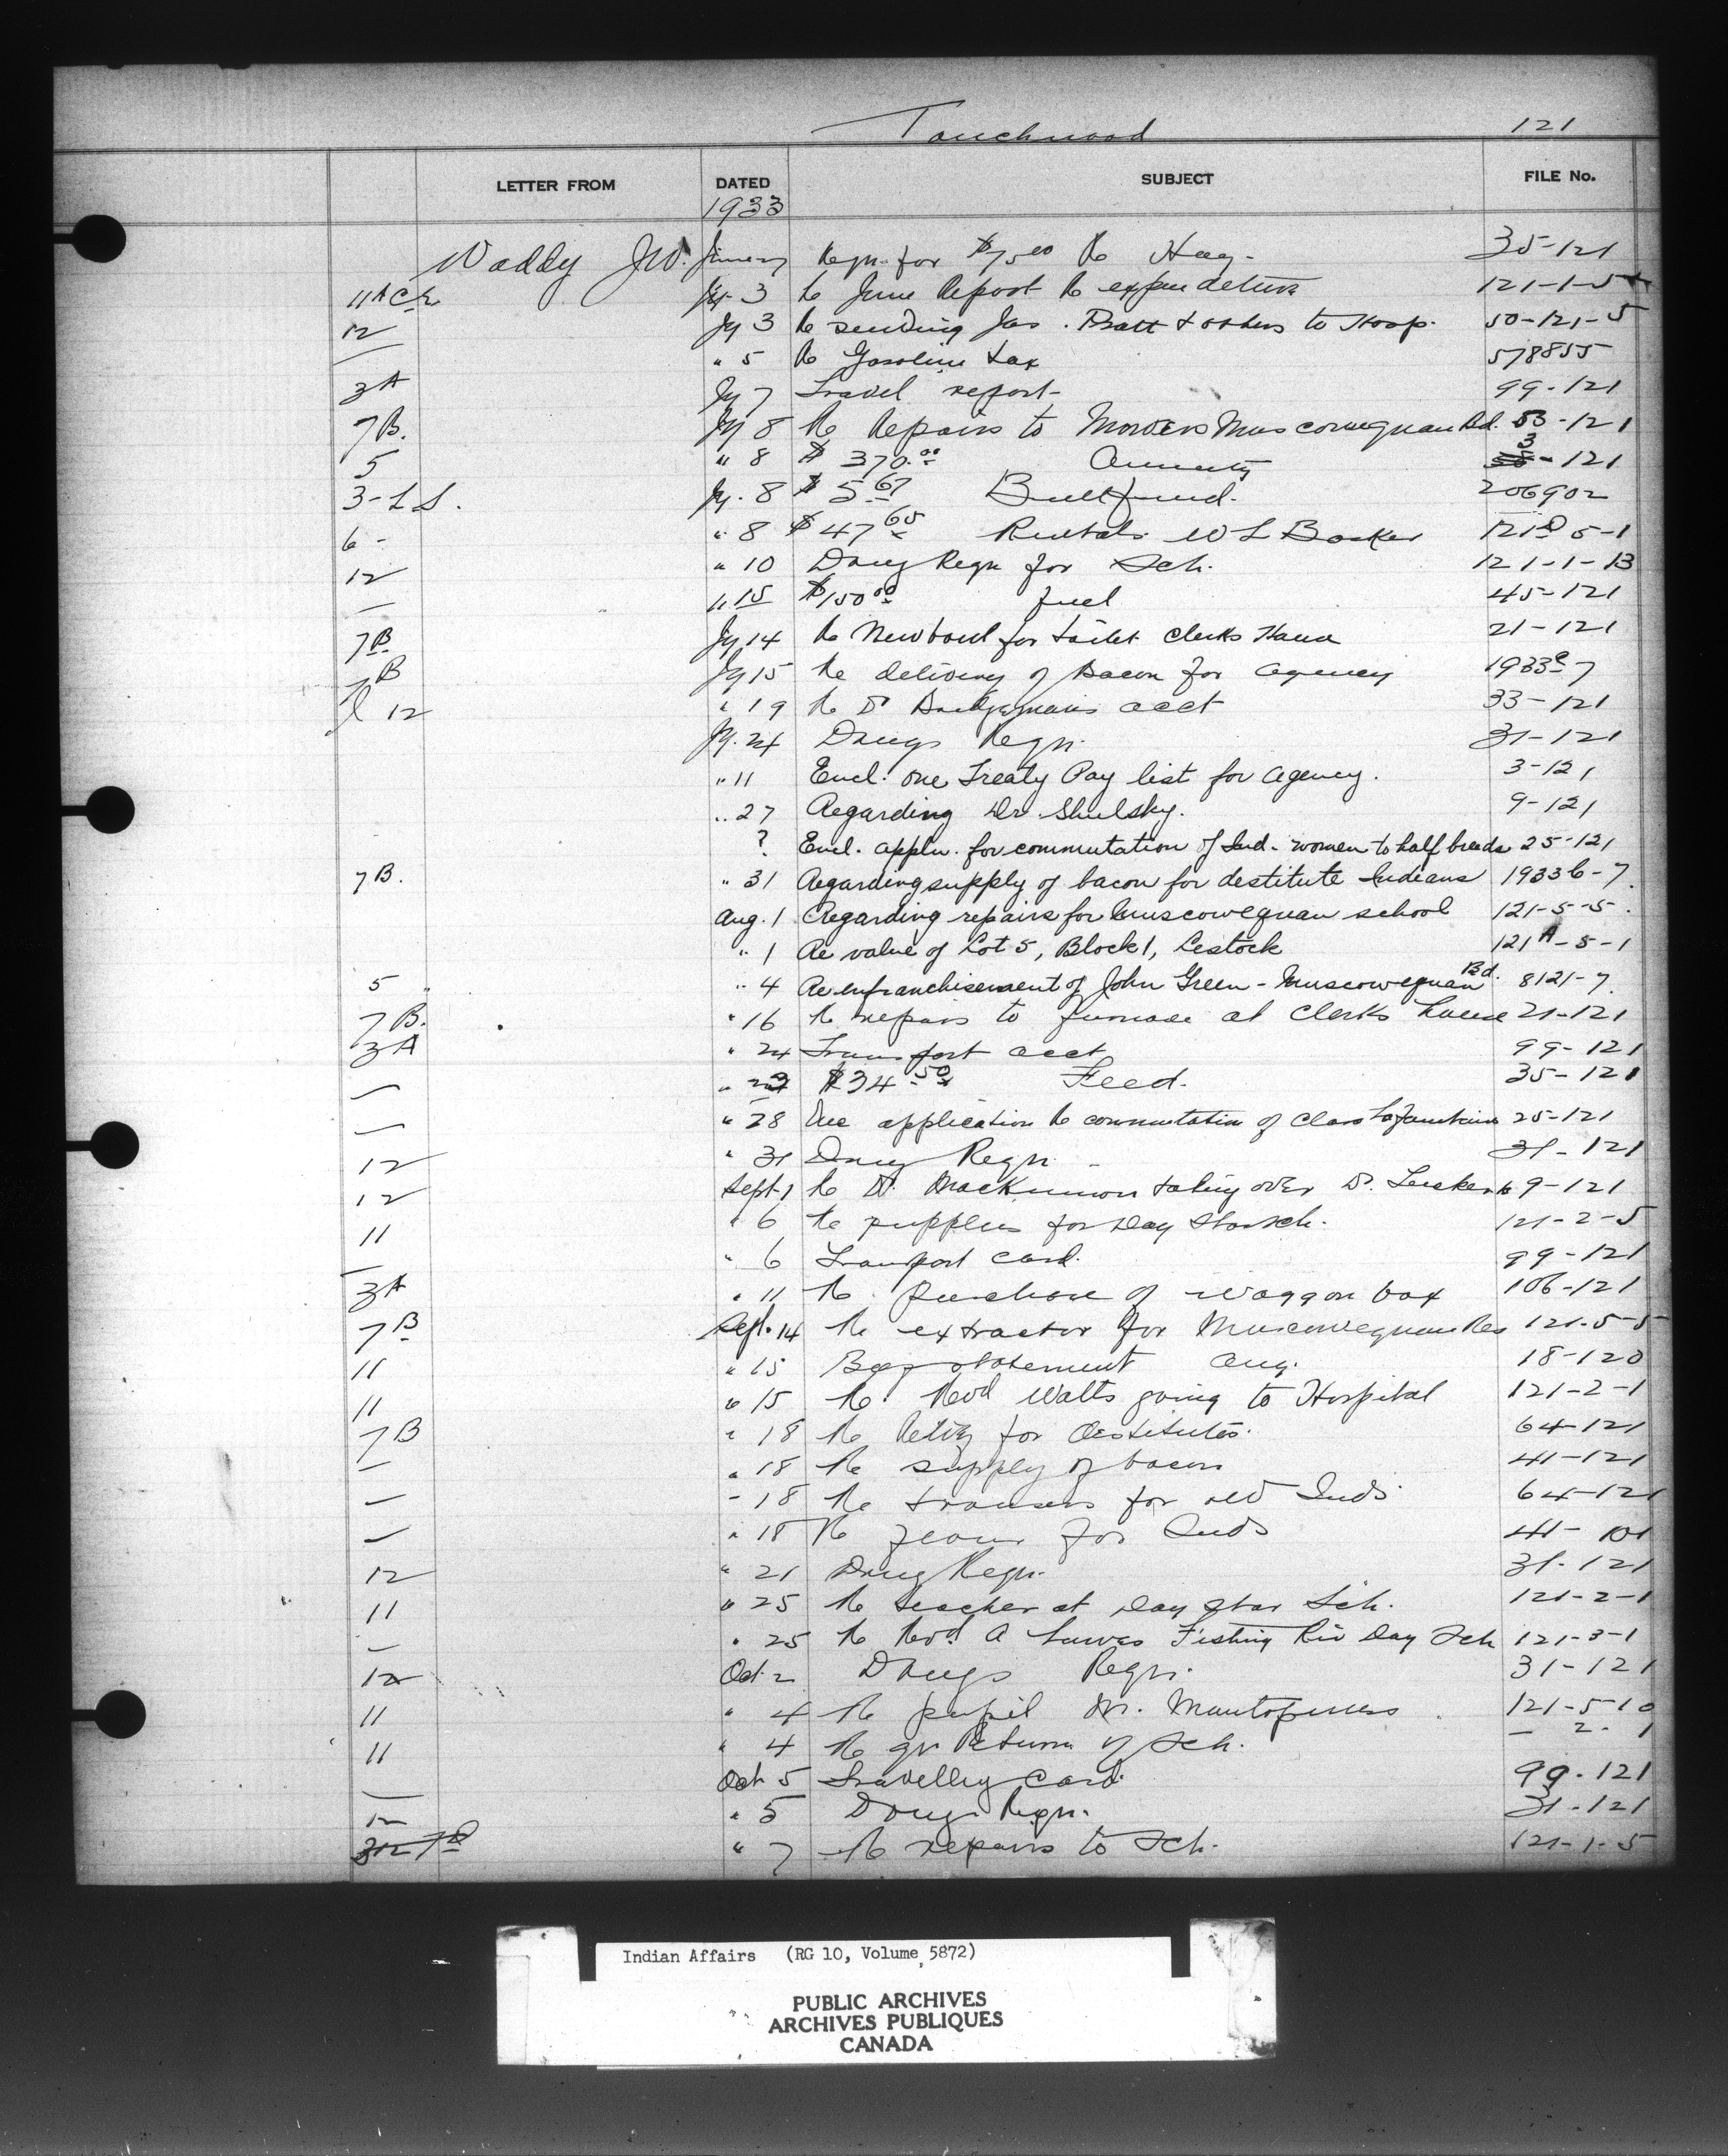 Touchwood 121
LETTER FROM DATED SUBJECT FILE No.
1933
Waddy J.W. Reqn for $75.00 Re Hay- 35-121
11 A Jy 3 Re June Report Re expenditure 121-1-5
12 Jy 3 Re sending Jas. Pratt & others to Hosp. 50-121-5
— " 5 Re Gasoline tax 578855
3A Jy 7 Travel report- 99-121
7B. Jy 8 Re Repairs to Mowers Muscowequan Bd. 53-121
5 " 8 $ 370.00 Annuity 3-121
3-L S. Jy. 8 $ 5.67 206902
6- " 8 $ 47.65 Rentals W L 121 5-1
12 " 10 Drug Reqn for Sch. 121-1-13
— " 15 $150.00 fuel 45-121
7B Jy 14 Re New bowl for toilet Clerks House 21-121
7B Jy 15 Re delivery of Bacon for agency 1933 7
12 " 19 Re Dr acct 33-121
Jy. 24 Drugs Reqn. 31-121
" 11 Encl. one Treaty Pay list for agency. 3-121
" 27 Regarding Dr. Shulsky. 9-121
? Encl. appln. for commutation of Ind. women to half breeds 25-121
7B. " 31 Regarding supply of bacon for destitute Indians 1933 6-7
Aug. 1 Regarding repairs for Muscowequan school 121-5-5.
" 1 Re value of Lot 5, Block 1, Lestock 121A-5-1
5 " 4 Re enfranchisement of John Green - Muscowequan Bd. 8121-7
7B. " 16 Re repairs to furnace at Clerks house 21-121
3A " 24 Transport acct 99-121
— " 23 $34.50 Feed. 35-121
— " 28 application Re commutation of Clara 25-121
12 " 31 Drug Reqn - 31-121
12 Sept. 1 Re Dr. MacKinnon taking over Dr. 9-121
11 " 6 Re supplies for Day Star Sch. 121-2-5
— " 6 Transport card. 99-121
3A " 11 Re purchase of waggon box 106-121
7B Sept. 14 Re extractor for Muscowequan Res 121-5-5
11 " 15 statement Aug. 18-120
11 " 15 Re. Revd Watts going to Hospital 121-2-1
7B " 18 Re for destitutes. 64-121
— " 18 Re supply of bacon 41-121
— " 18 Re trousers for old Inds. 64-121
— " 18 Re flour for Inds 41-101
12 " 21 Drug Reqn. 31-121
11 " 25 Re teacher at Day Star Sch. 121-2-1
— " 25 Re Revd. A Fishing Day Sch 121-3-1
12 Oct. 2 Drugs Reqn. 31-121
11 " 4 Re pupil 121-5-10
11 " 4 Re qr Return of Sch. — 2- 1
— Oct 5 Travelling Card. 99-121
12 " 5 Drugs Reqn. 31-121
7B " 7 Re repairs to Sch. 121-1-5
Indian Affairs (RG 10, Volume 5872)
PUBLIC ARCHIVES
ARCHIVES PUBLIQUES
CANADA